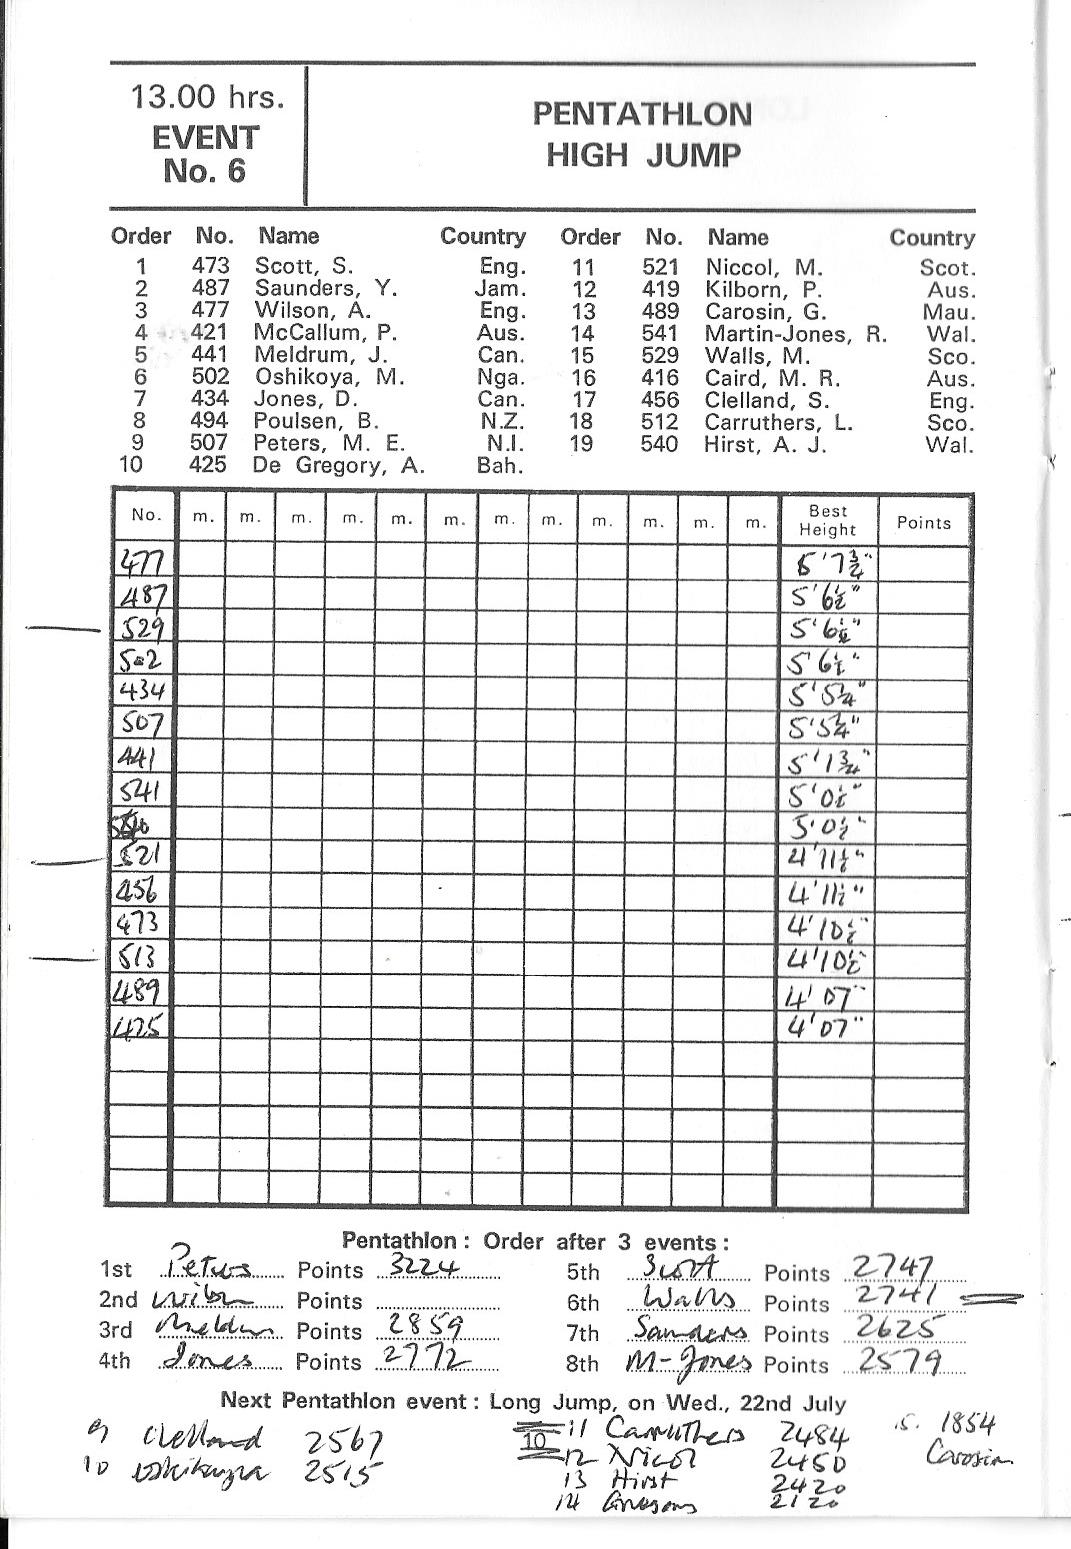 13.00 hrs.
EVENT
No. 6
PENTATHLON
HIGH JUMP
Order No. Name Country Order No. Name Country
1 473 Scott, S. Eng. 11 521 Niccol, M. Scot.
2 487 Saunders, Y. Jam. 12 419 Kilborn, P. Aus.
3 477 Wilson, A. Eng. 13 489 Carosin, G. Mau.
4 421 McCallum, P. Aus. 14 541 Martin-Jones, R. Wal.
5 441 Meldrum, J. Can. 15 529 Walls, M. Sco.
6 502 Oshikoya, M. Nga. 16 416 Caird, M. R. Aus.
7 434 Jones, D. Can. 17 456 Clelland, S. Eng.
8 494 Poulsen, B. N.Z. 18 512 Carruthers, L. Sco.
9 507 Peters, M. E. N.I. 19 540 Hirst, A. J. Wal.
10 425 De Gregory, A. Bah.
No. m. m. m. m. m. m. m. m. m. m. m. m. Best Height Points
477 5'7¾"
487 5'6½"
529 5'6½"
502 5'6½"
434 5'5¼"
507 5'5¼"
441 5'1¾"
541 5'0½"
540 5'0½"
521 4'11½"
456 4'11½"
473 4'10½"
513 4'10½"
489 4'07"
425 4'07"
Pentathlon: Order after 3 events:
1st Peters Points 3224 5th Scott Points 2747
2nd Wilson Points 6th Walls Points 2741
3rd Meldrum Points 2859 7th Saunders Points 2625
4th Jones Points 2772 8th M-Jones Points 2579
Next Pentathlon event: Long Jump, on Wed., 22nd July
9 Clelland 2567 11 Carruthers 2484 15. 1854
10 Oshikoya 2515 10 12 Nicol 2450 Carosin
13 Hirst 2420
14 2120